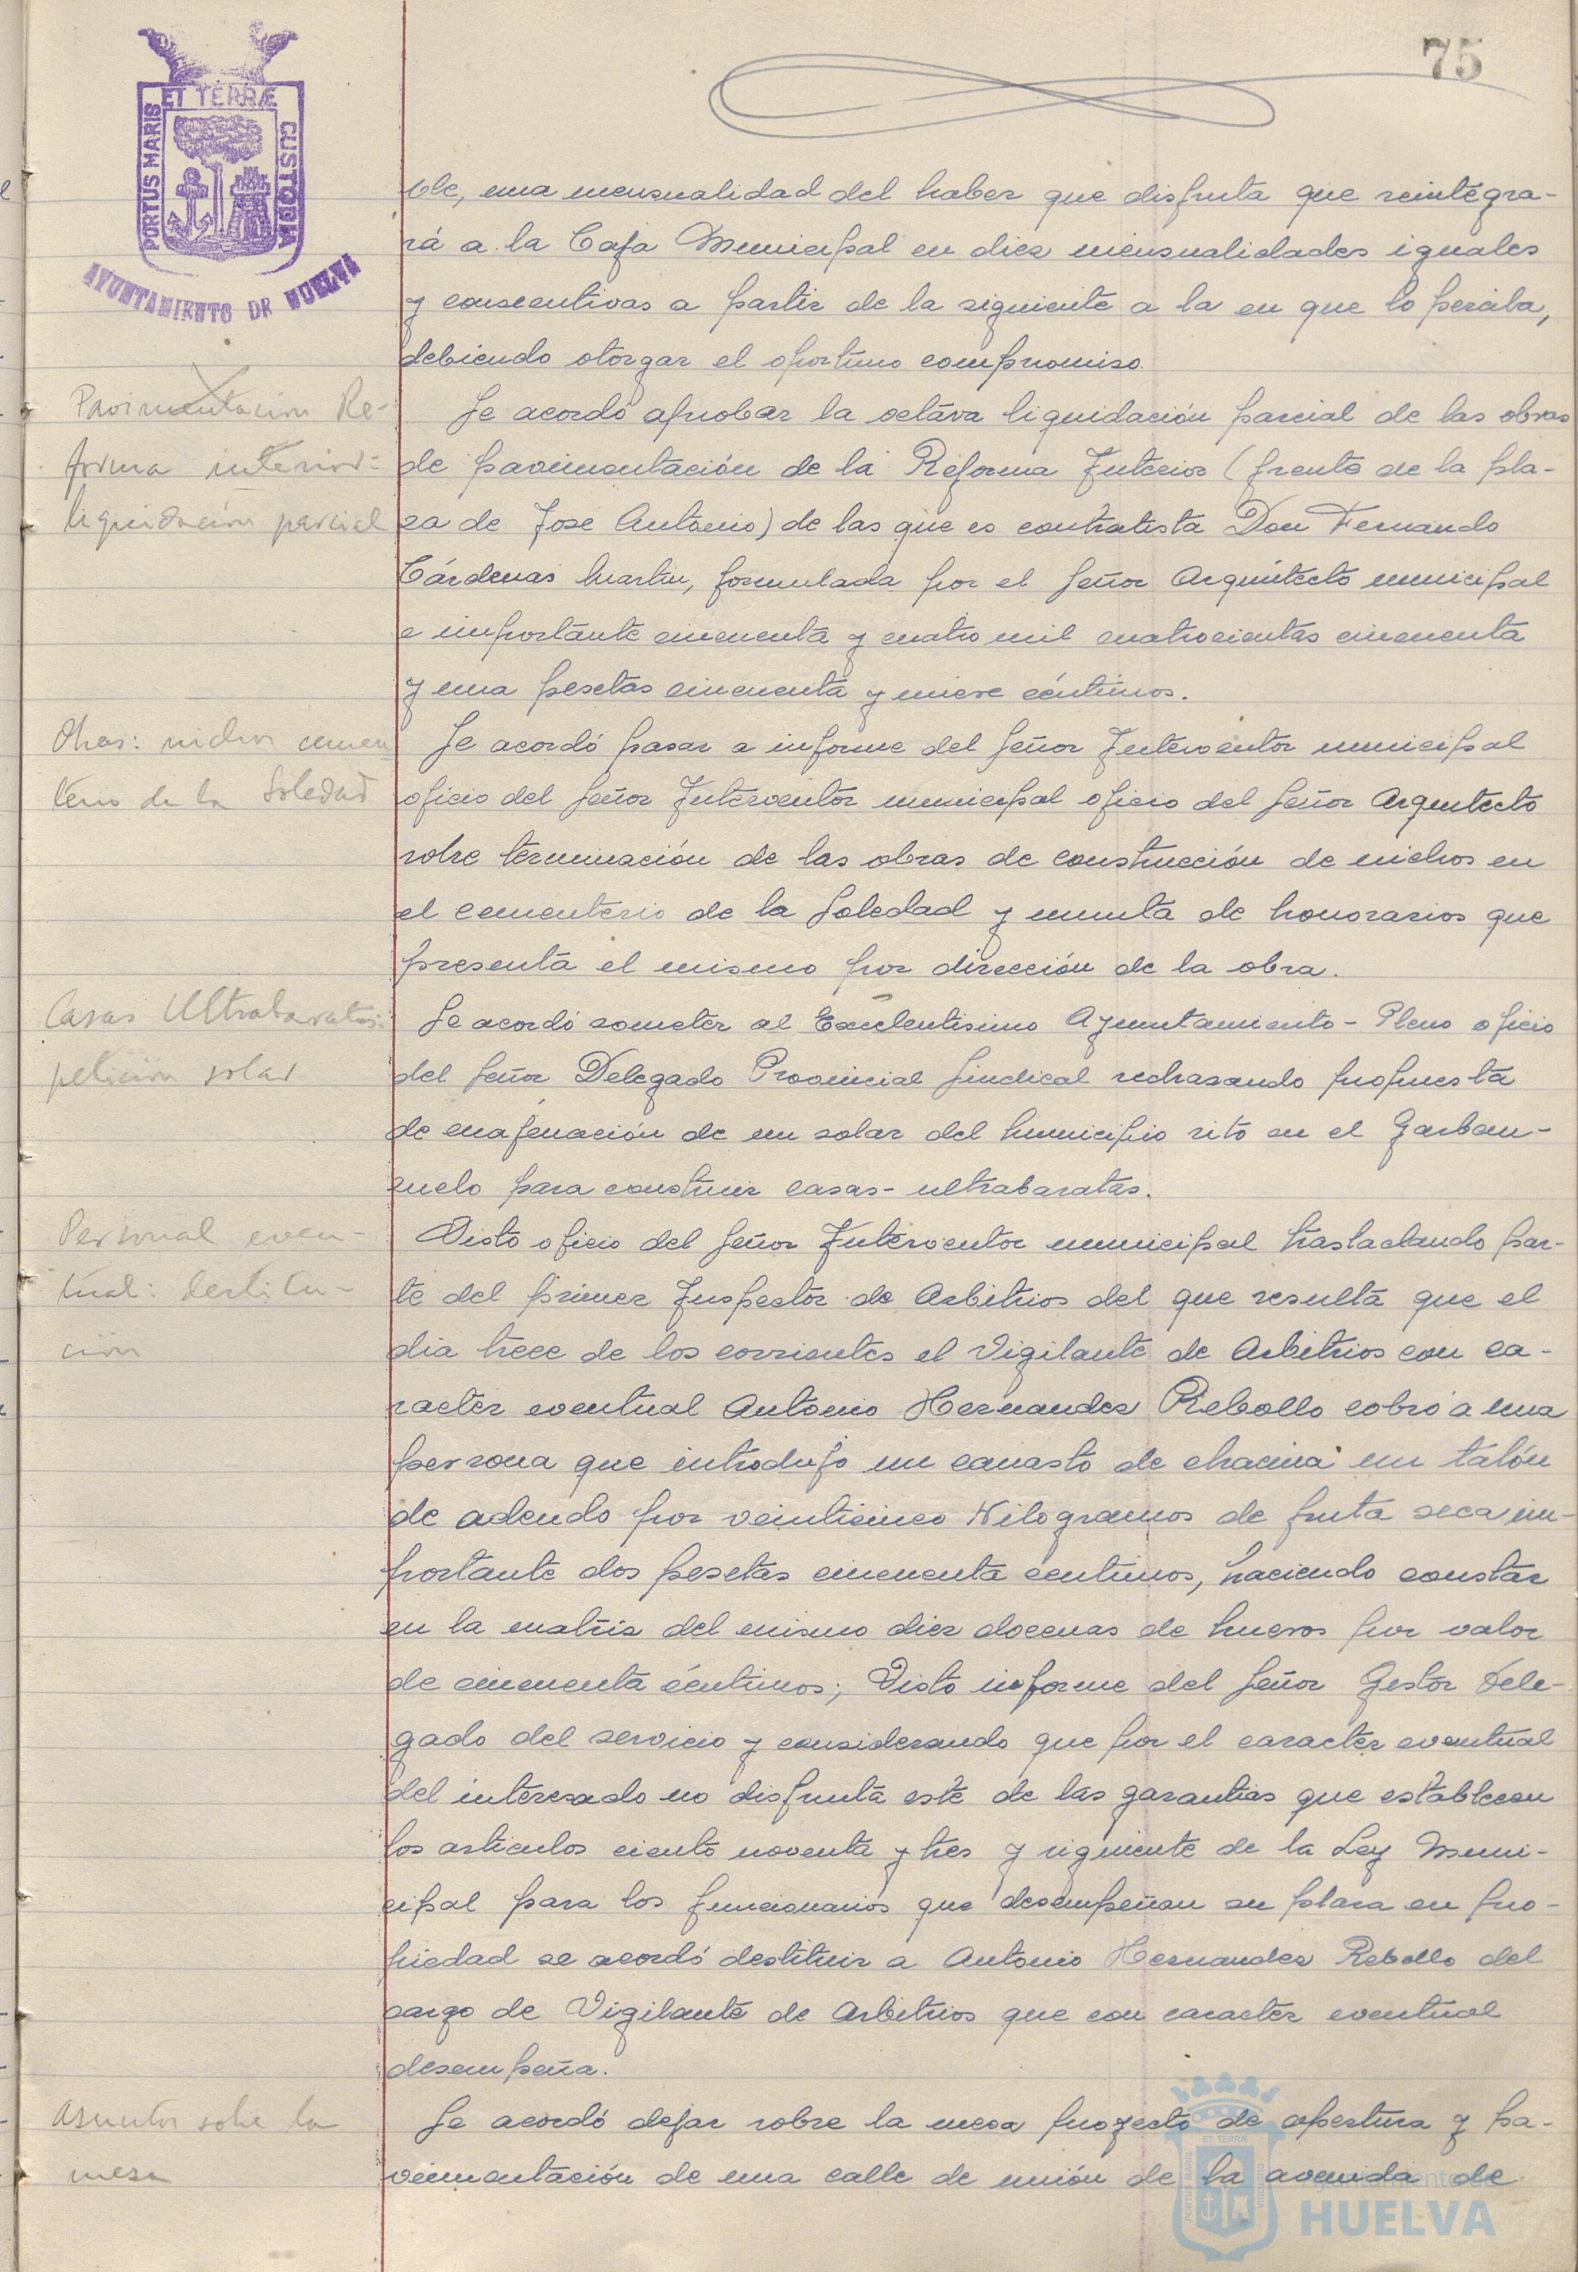 75
ET TERRÆ
PORTUS MARIS
CUSTODIA
AYUNTAMIENTO DE HUELVA
ble, una mensualidad del haber que disfruta que reintegra-
rá a la Caja Municipal en diez mensualidades iguales
y consecutivas a partir de la siguiente a la en que lo perciba,
debiendo otorgar el oportuno compromiso.
Pavimentación Re-
forma interior:
liquidación parcial
Se acordó aprobar la octava liquidación parcial de las obras
de pavimentación de la Reforma Interior (frente de la pla-
za de Jose Antonio) de las que es contratista Don Fernando
Cárdenas Martin, formulada por el Señor Arquitecto municipal
e importante cincuenta y cuatro mil cuatrocientas cincuenta
y una pesetas cincuenta y nueve céntimos.
Obras: nichos cemen
terio de la Soledad
Se acordó pasar a informe del Señor Interventor municipal
oficio del Señor Interventor municipal oficio del Señor Arquitecto
sobre terminación de las obras de construcción de nichos en
el cementerio de la Soledad y minuta de honorarios que
presenta el mismo por dirección de la obra.
Casas Ultrabaratas:
petición solar
Se acordó someter al Excelentisimo Ayuntamiento-Pleno oficio
del Señor Delegado Provincial Sindical rechazando propuesta
de enajenación de un solar del Municipio sito en el Garban-
zuelo para construir casas-ultrabaratas.
Personal even-
tual: destitu-
ción
Visto oficio del Señor Interventor municipal trasladando par-
te del primer Inspector de Arbitrios del que resulta que el
dia trece de los corrientes el Vigilante de Arbitrios con ca-
racter eventual Antonio Hernandez Rebollo cobró a una
persona que introdujo un canasto de chacina un talón
de adeudo por veinticinco Kilogramos de fruta seca im-
portante dos pesetas cincuenta centimos, haciendo constar
en la matriz del mismo diez docenas de huevos por valor
de cincuenta céntimos; Visto informe del Señor Gestor Dele-
gado del servicio y considerando que por el caracter eventual
del interesado no disfruta este de las garantias que establecen
los articulos ciento noventa y tres y siguiente de la Ley Muni-
cipal para los funcionarios que desempeñan su plaza en pro-
piedad se acordó destituir a Antonio Hernandez Rebollo del
cargo de Vigilante de Arbitrios que con caracter eventual
desempeña.
Asuntos sobre la
mesa
Se acordó dejar sobre la mesa proyecto de apertura y pa-
vimentación de una calle de unión de la avenida de
Ayuntamiento de
HUELVA